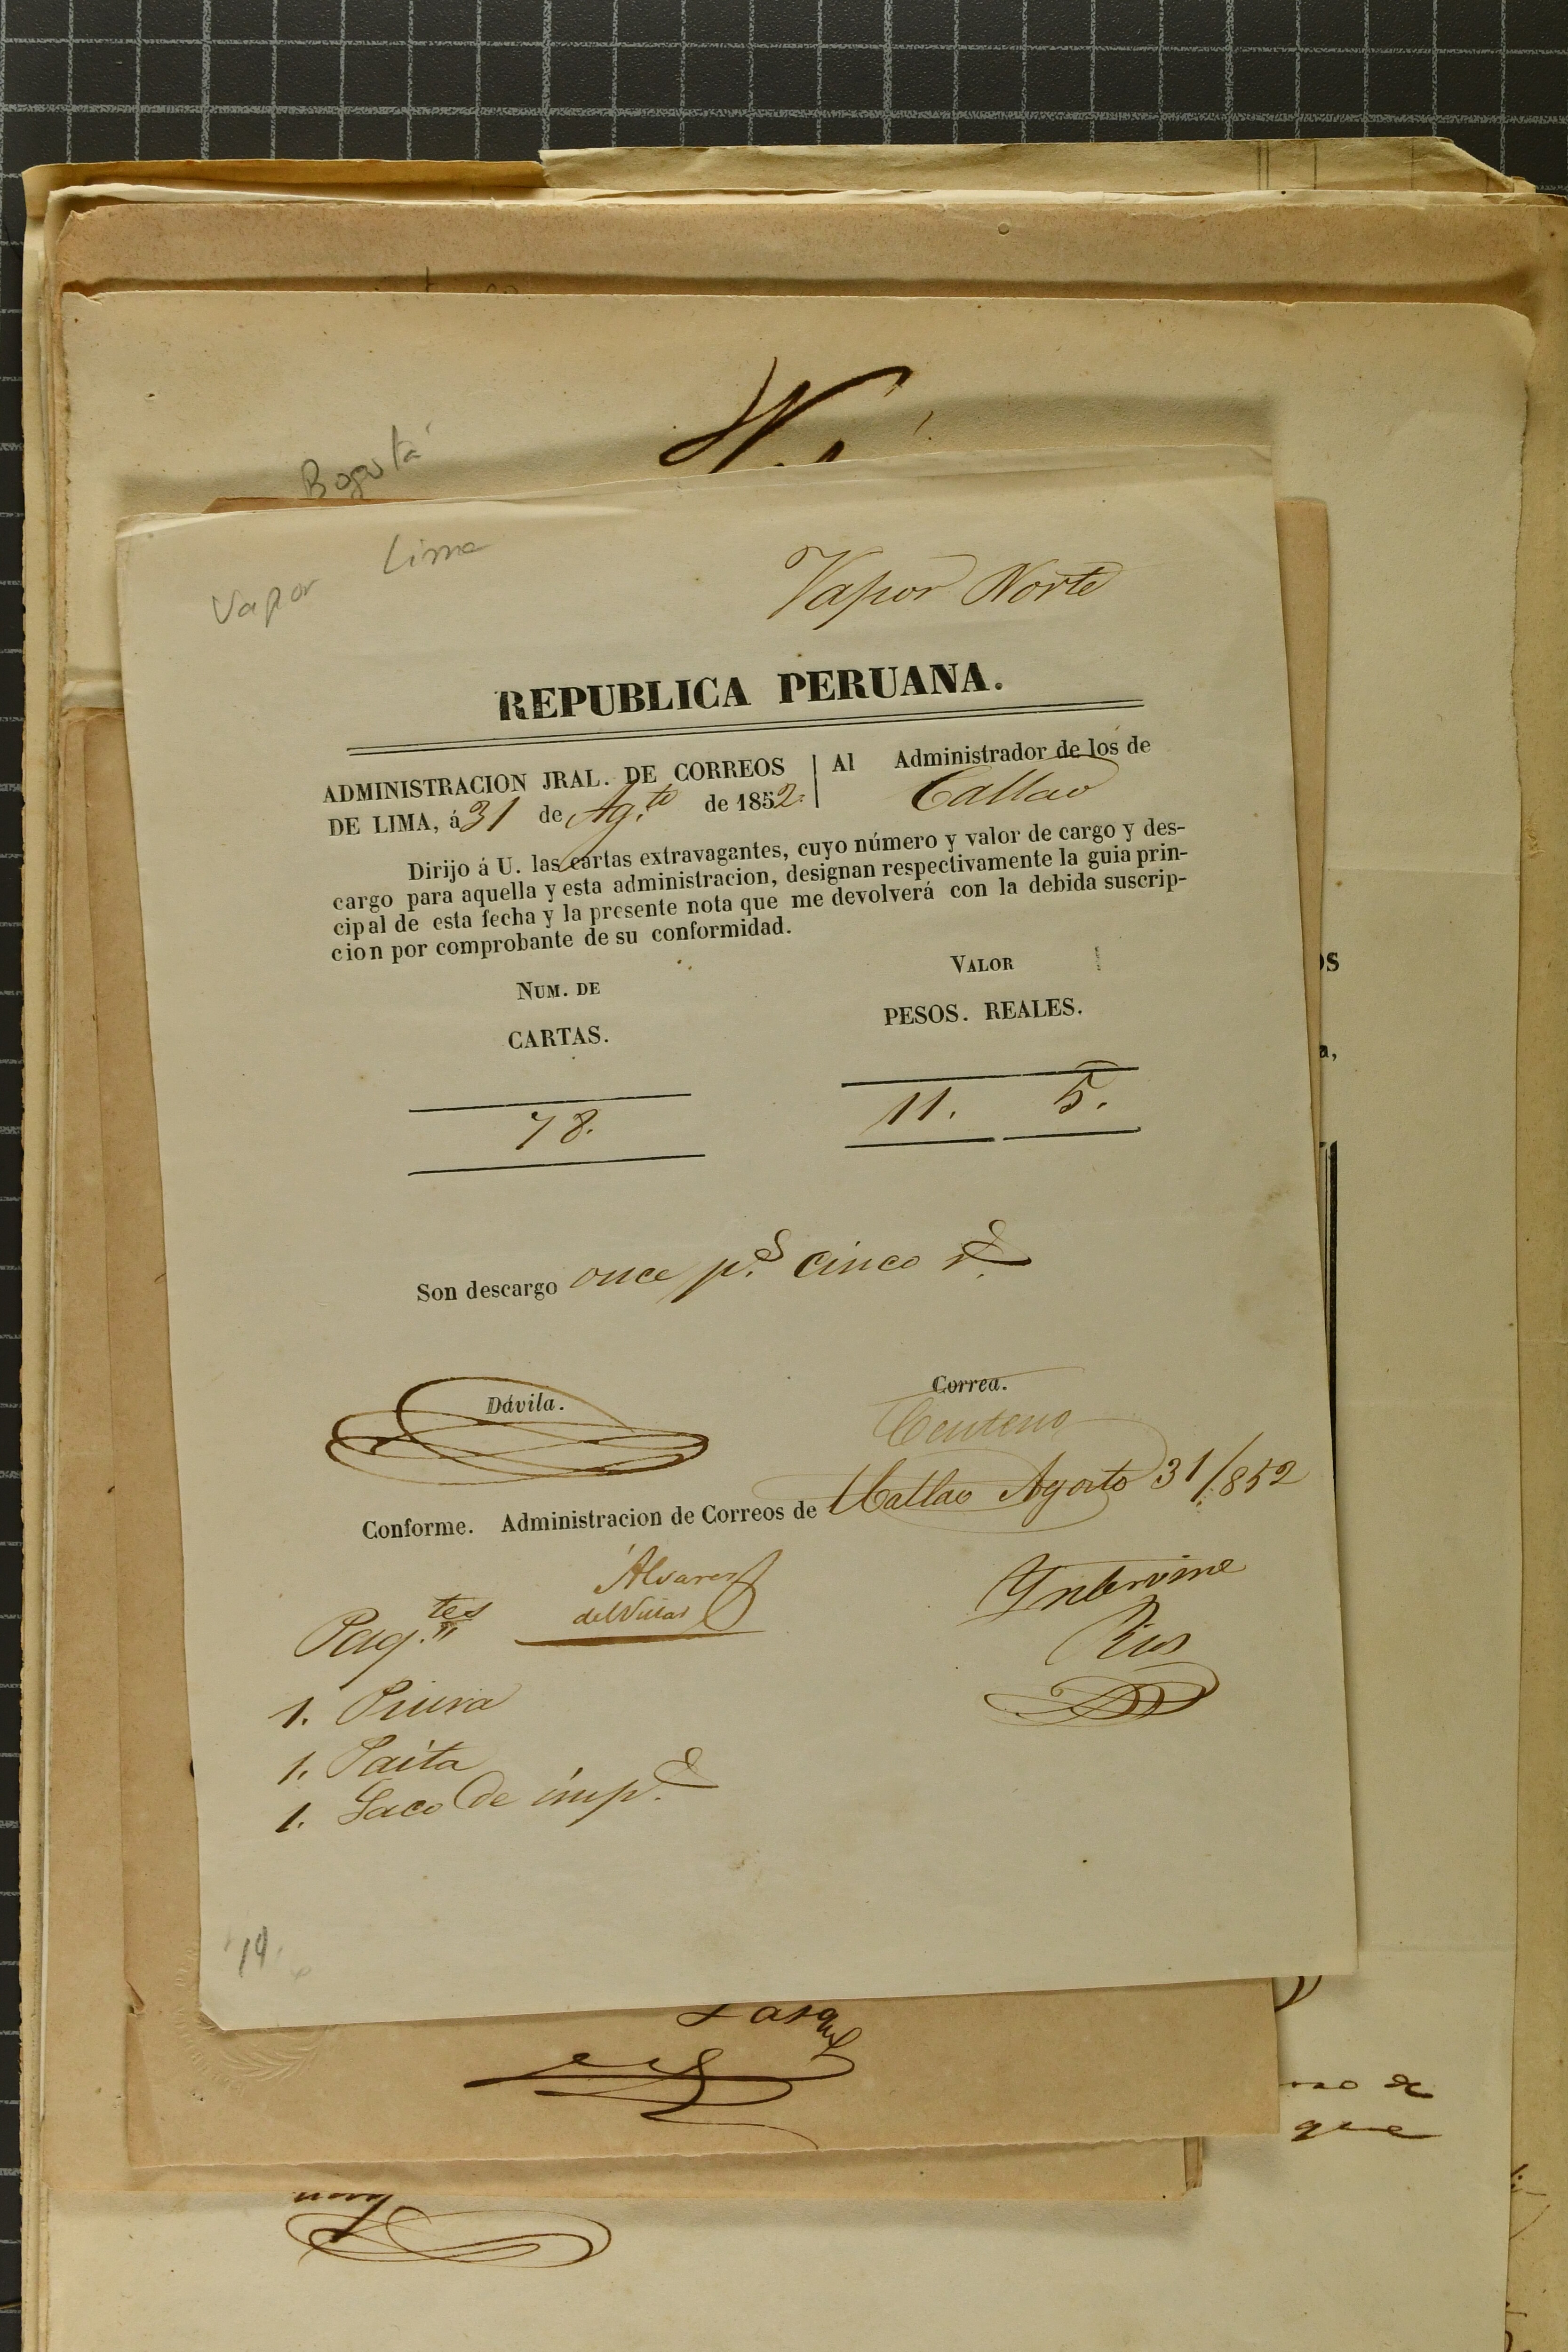 Bogotá
Lima
Vapor
Vapor Norte
REPUBLICA PERUANA.
ADMINISTRACION JRAL. DE CORREOS
DE LIMA, á 31 de Ag.to de 1852.
Al Administrador de los de
Callao
Dirijo á U. las cartas extravagantes, cuyo número y valor de cargo y des-
cargo para aquella y esta administracion, designan respectivamente la guia prin-
cipal de esta fecha y la presente nota que me devolverá con la debida suscrip-
cion por comprobante de su conformidad.
NUM. DE
CARTAS.
VALOR
PESOS. REALES.
78.
11. 5.
Son descargo once p.s cinco r.s
Dávila.
Correa.
Centeno
Conforme. Administracion de Correos de Callao Agosto 31/852
Alvarez
del Villar
Intervine
Rios
Paq.tes
1. Piura
1. Paita
1. Saco de imp.s
14
os
a,
que